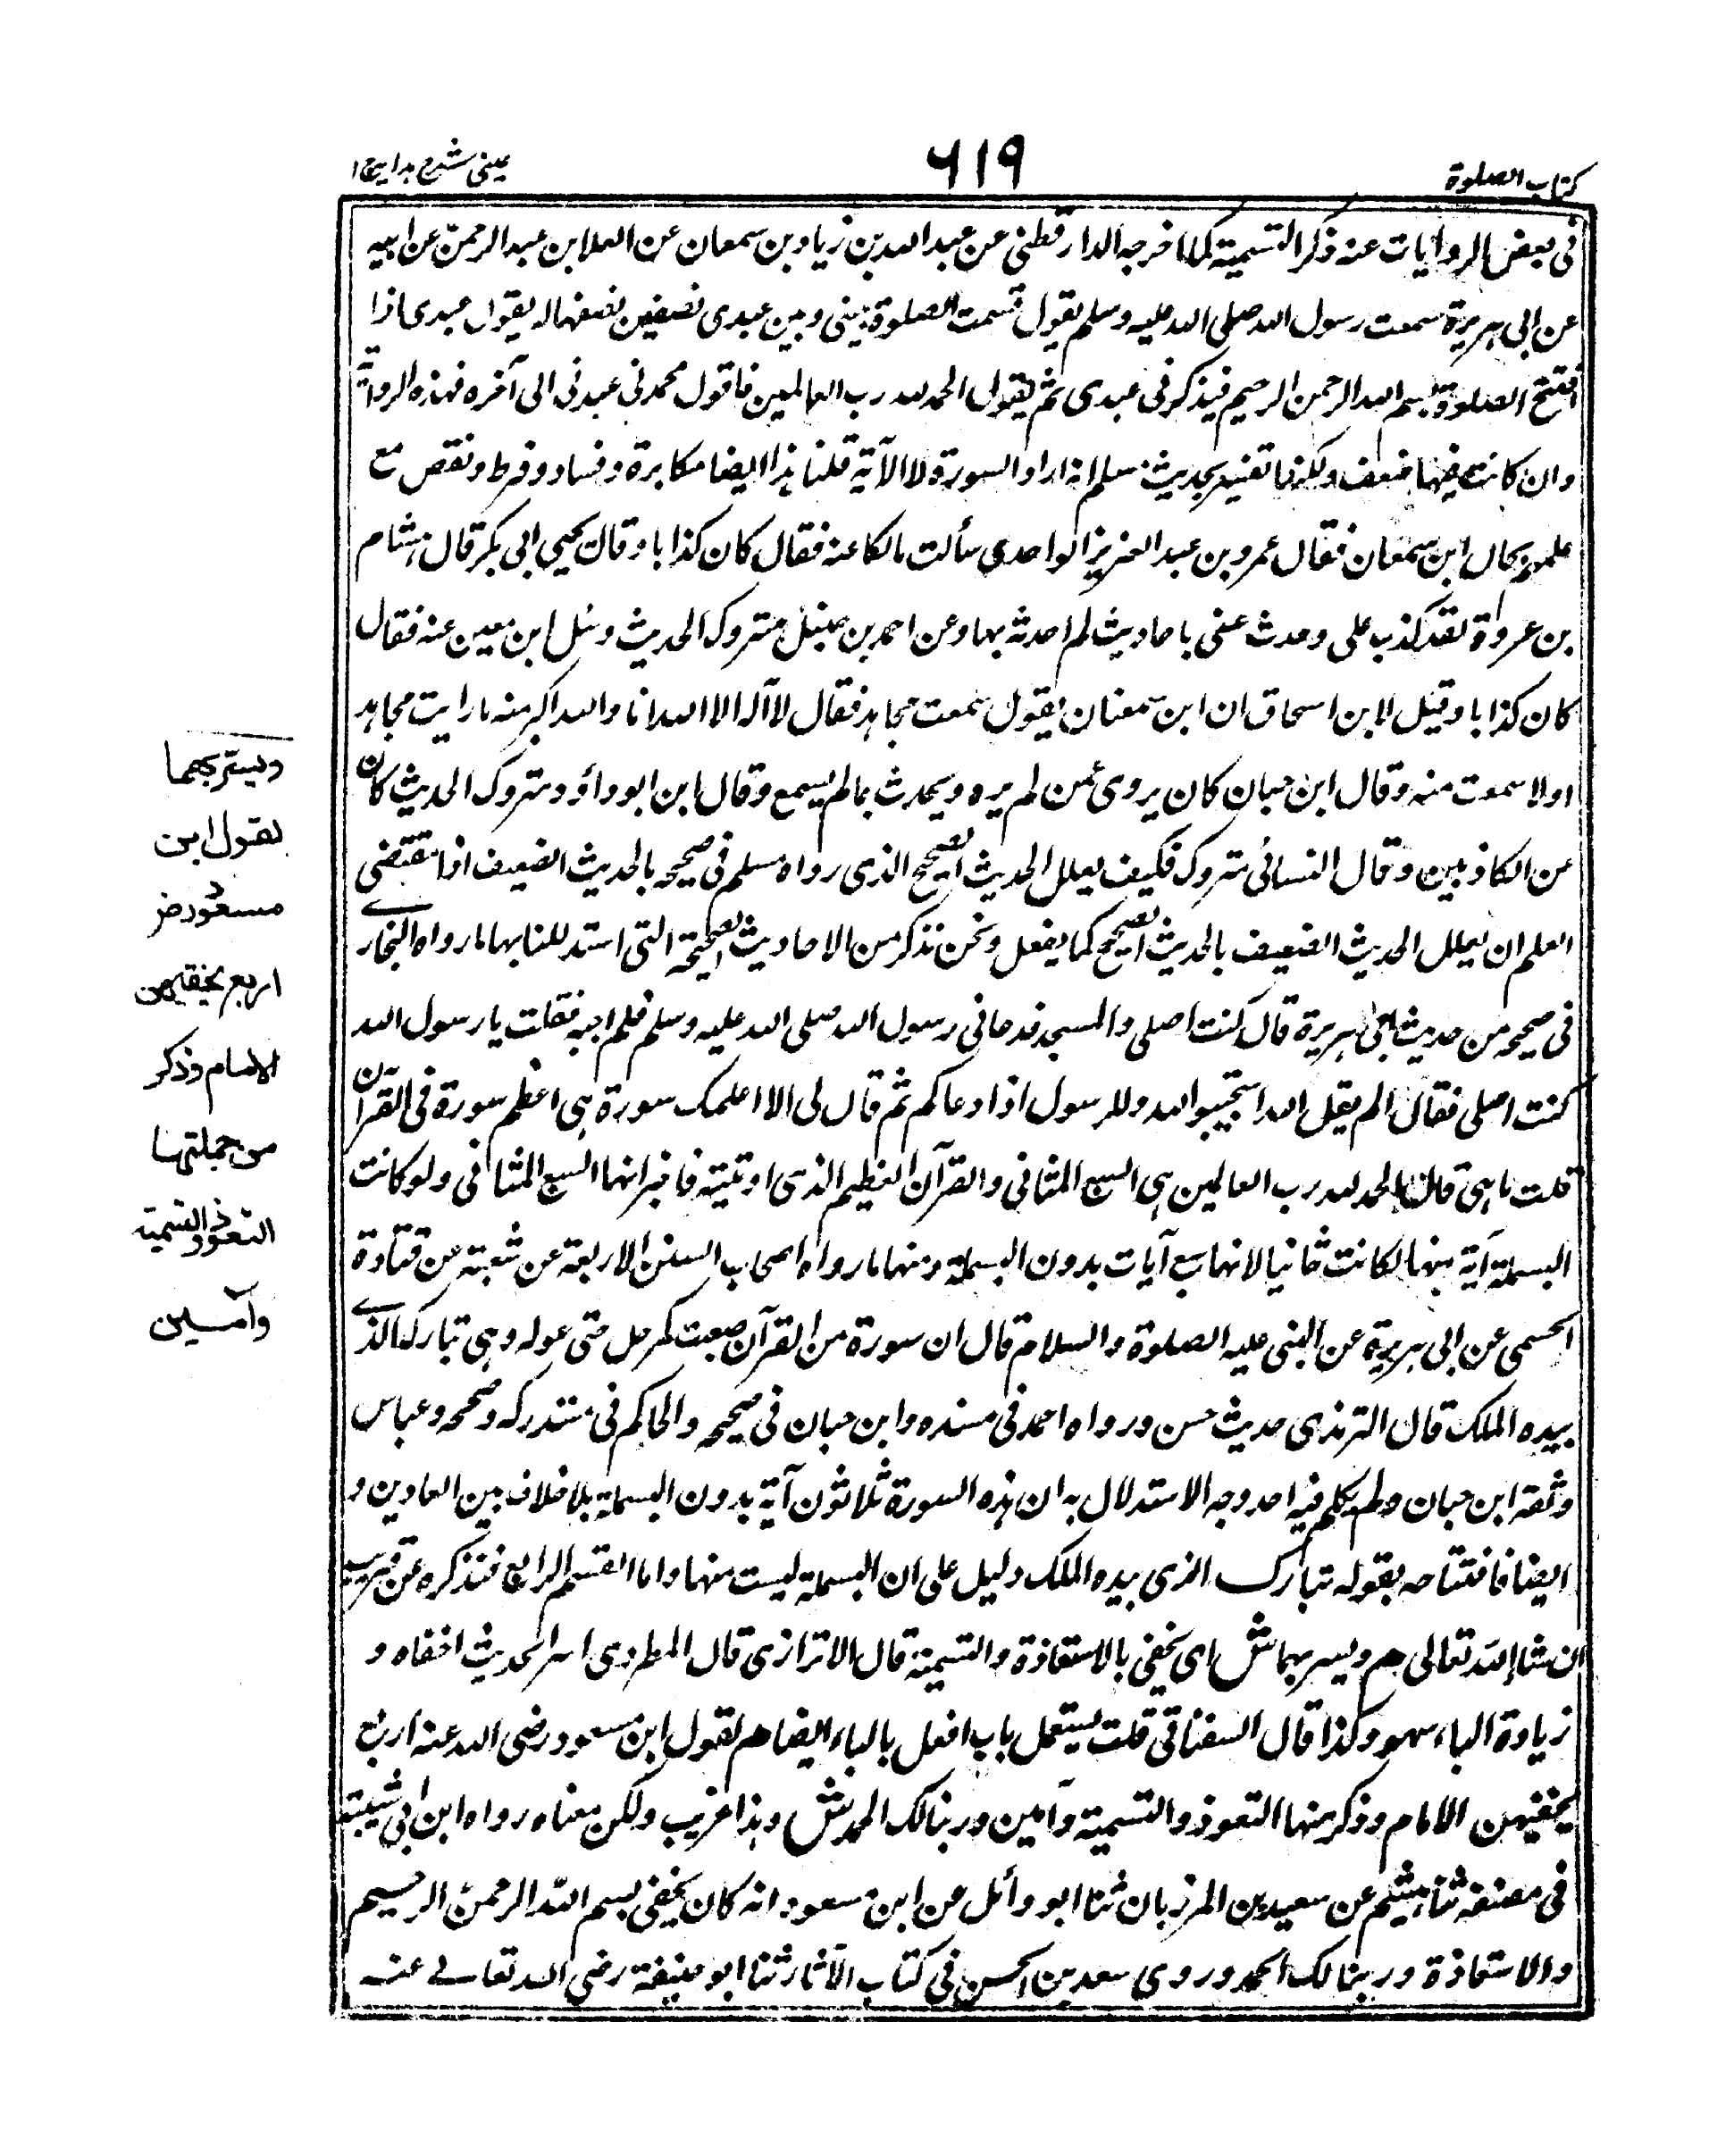 كتاب الصلوة
٦١٩
عينى شرح هدايه ج ١
فى بعض الروايات عنه ذكر التسمية كما اخرجه الدارقطنى عن عبد الله بن زياد بن سمعان عن العلا بن عبد الرحمن عن ابيه
عن ابى هريرة سمعت رسول الله صلى الله عليه وسلم يقول قسمت الصلوة بينى وبين عبدى نصفين نصفها له يقول عبدى اذا
افتتح الصلوة بسم الله الرحمن الرحيم فيذكرنى عبدى ثم يقول الحمد لله رب العالمين فاقول حمدنى عبدنى الى آخره فهذه الرواية
وان كانت فيها ضعف ولكنها تفسير بحديث مسلم انه اراد السورة لا الآية قلنا هذا ايضا مكابرة وفساد وفرط ونقص مع
علمه بحال ابن سمعان فقال عمرو بن عبد العزيز الواحدى سألت مالكا عنه فقال كان كذابا وقال يحيى ابى بكر قال هشام
بن عروة لقد كذب على وحدث عنى باحاديث لم احدثه بها وعن احمد بن حنبل متروك الحديث وسئل ابن معين عنه فقال
كان كذابا وقيل لابن اسحاق ان ابن سمعان يقول سمعت مجاهد فقال لا آله الا الله انا والله اكبر منه ما رايت مجاهد
اولا سمعت منه وقال ابن حبان كان يروى عمن لم يره ويحدث بما لم يسمع وقال ابن ابو داؤد متروك الحديث كان
من الكاذبين وقال النسائى متروك فكيف يعلل الحديث الصحيح الذى رواه مسلم فى صحيحه بالحديث الضعيف اذا مقتضى
العلم ان يعلل الحديث الضعيف بالحديث الصحيح كما يفعل ونحن نذكر من الاحاديث الصحيحة التى استدللنا بها ما رواه البخارى
فى صحيحه من حديث ابى هريرة قال كنت اصلى والمسجد فدعانى رسول الله صلى الله عليه وسلم فلم اجبه فقلت يا رسول الله
كنت اصلى فقال الم يقل الله استجيبوا الله وللرسول اذا دعاكم ثم قال لى الا اعلمك سورة هى اعظم سورة فى القرآن
قلت ما هى قال الحمد لله رب العالمين هى السبع المثانى والقرآن العظيم الذى اوتيته فاخبر انها السبع المثانى ولو كانت
البسملة آية منها لكانت ثمانيا لانها سبع آيات بدون البسملة ومنها ما رواه اصحاب السنن الاربعة عن شعبة عن قتادة
الحسمى عن ابى هريرة عن النبى عليه الصلوة والسلام قال ان سورة من القرآن صبعت كرحل حتى عوله وهى تبارك الذى
بيده الملك قال الترمذى حديث حسن ورواه احمد فى مسنده وابن حبان فى صحيحه والحاكم فى مستدركه وصححه وعباس
وثقه ابن حبان ولم يتكلم فيه احد وجه الاستدلال به ان هذه السورة ثلاثون آية بدون البسملة بلا خلاف بين العادين و
ايضا فافتتاحه بقوله تبارك الذى بيده الملك دليل على ان البسملة ليست منها واما القسم الرابع فنذكره عن قريب
ان شاء الله تعالى هم ويسر بهما ش اى يخفى بالاستعاذة والتسمية قال الاترازى قال المطرزى اسر الحديث اخفاه و
زيادة الباء سهو وكذا قال السغناقى قلت يستعمل باب افعل بالباء ايضا هم لقول ابن مسعود رضى الله عنه اربع
يخفيهن الامام وذكر منها التعوذ والتسمية وآمين وربنا لك الحمد ش وهذا غريب ولكن معناه رواه ابن ابى شيبة
فى مصنفه ثنا هشيم عن سعيد بن المرزبان ثنا ابو وائل عن ابن مسعود انه كان يخفى بسم الله الرحمن الرحيم
والاستعاذة وربنا لك الحمد وروى سعد بن الحسن فى كتاب الآثار ثنا ابو حنيفة رضى الله تعالى عنه
ويستر بهما
لقول ابن
مسعود رض
اربع يخفيهن
الامام وذكر
من جملتها
التعوذ والتسمية
وآمسين